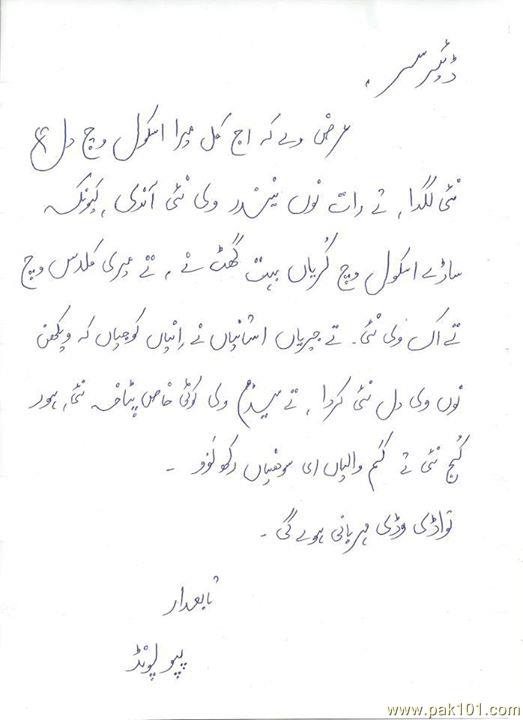 ڈئیر سر ،
عرض وے کہ اج کل میرا اسکول وچ دل
نئی لگدا، تے رات نوں نیندر وی نئی آندی ، کیونکہ
ساڈے اسکول وچ کُڑیاں بہت گھٹ نے ، تے میری کلاس وچ
تے اک وی نئی ۔ تے جیڑیاں استانیاں نے اِنّیاں کوجیاں کہ ویکھن
نوں وی دل نئی کردا ، تے میڈم وی کوئی خاص پٹاخہ نئی، ہور
کُج نئی تے کَم والیاں ای سوہنیاں رکھ لَوو ۔
تواڈی وڈی مہربانی ہوے گی ۔
تابعدار
پپو لونڈ
www.pak101.com